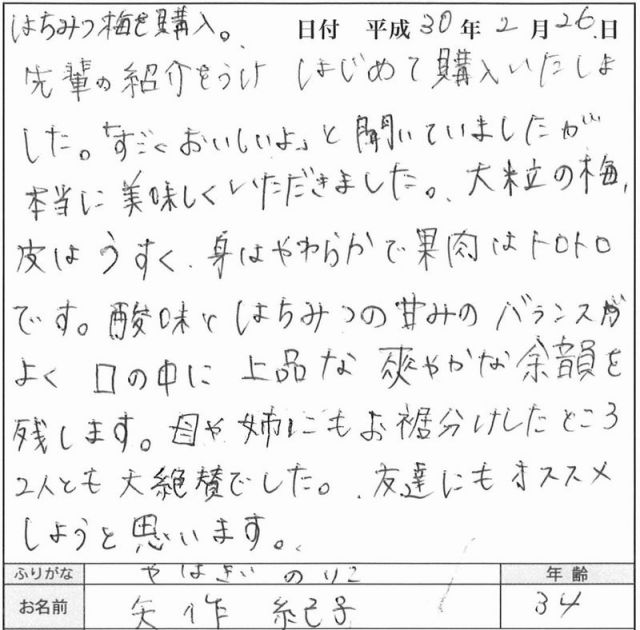 はちみつ梅を購入。 日付 平成30年2月26日
先輩の紹介をうけ はじめて購入いたしま
した。「すごくおいしいよ」と聞いていましたが
本当に美味しくいただきました。大粒の梅、
皮はうすく、身はやわらかで果肉はトロトロ
です。酸味とはちみつの甘みのバランスが
よく 口の中に 上品な 爽やかな余韻を
残します。母や姉にもお裾分けしたところ
2人とも大絶賛でした。友達にもオススメ
しようと思います。
ふりがな やはぎ のりこ 年齢
お名前 矢作 紀子 34